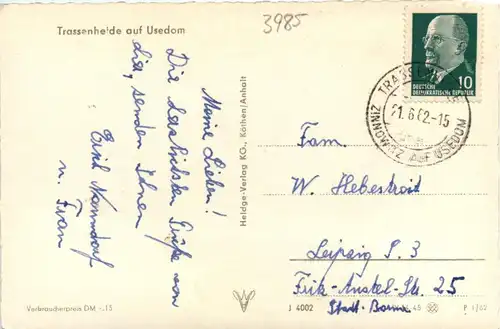 3985
Trassenheide auf Usedom
DEUTSCHE
DEMOKRATISCHE REPUBLIK
10
21.6.62-15
ZINNOWITZ AUF USEDOM
Meine Lieben!
Die herzlichsten Grüße von
hier, senden Ihnen
Emil
u. Frau
Heldge-Verlag KO., Köthen/Anhalt
Fam.
W. Hebestreit
Leipzig S. 3
Fritz-Austel-Str. 25
Verbraucherpreis DM -.15
J 4002
48
P 1/62